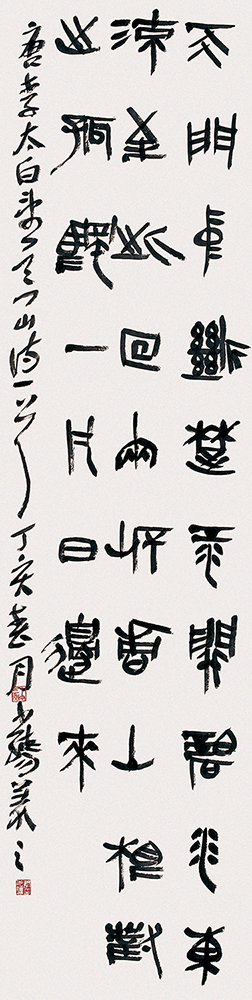 天門中斷楚江開碧水東
流至此回兩岸青山相對
出孤帆一片日邊來
唐李太白望天門山詩一首丁亥春月義之